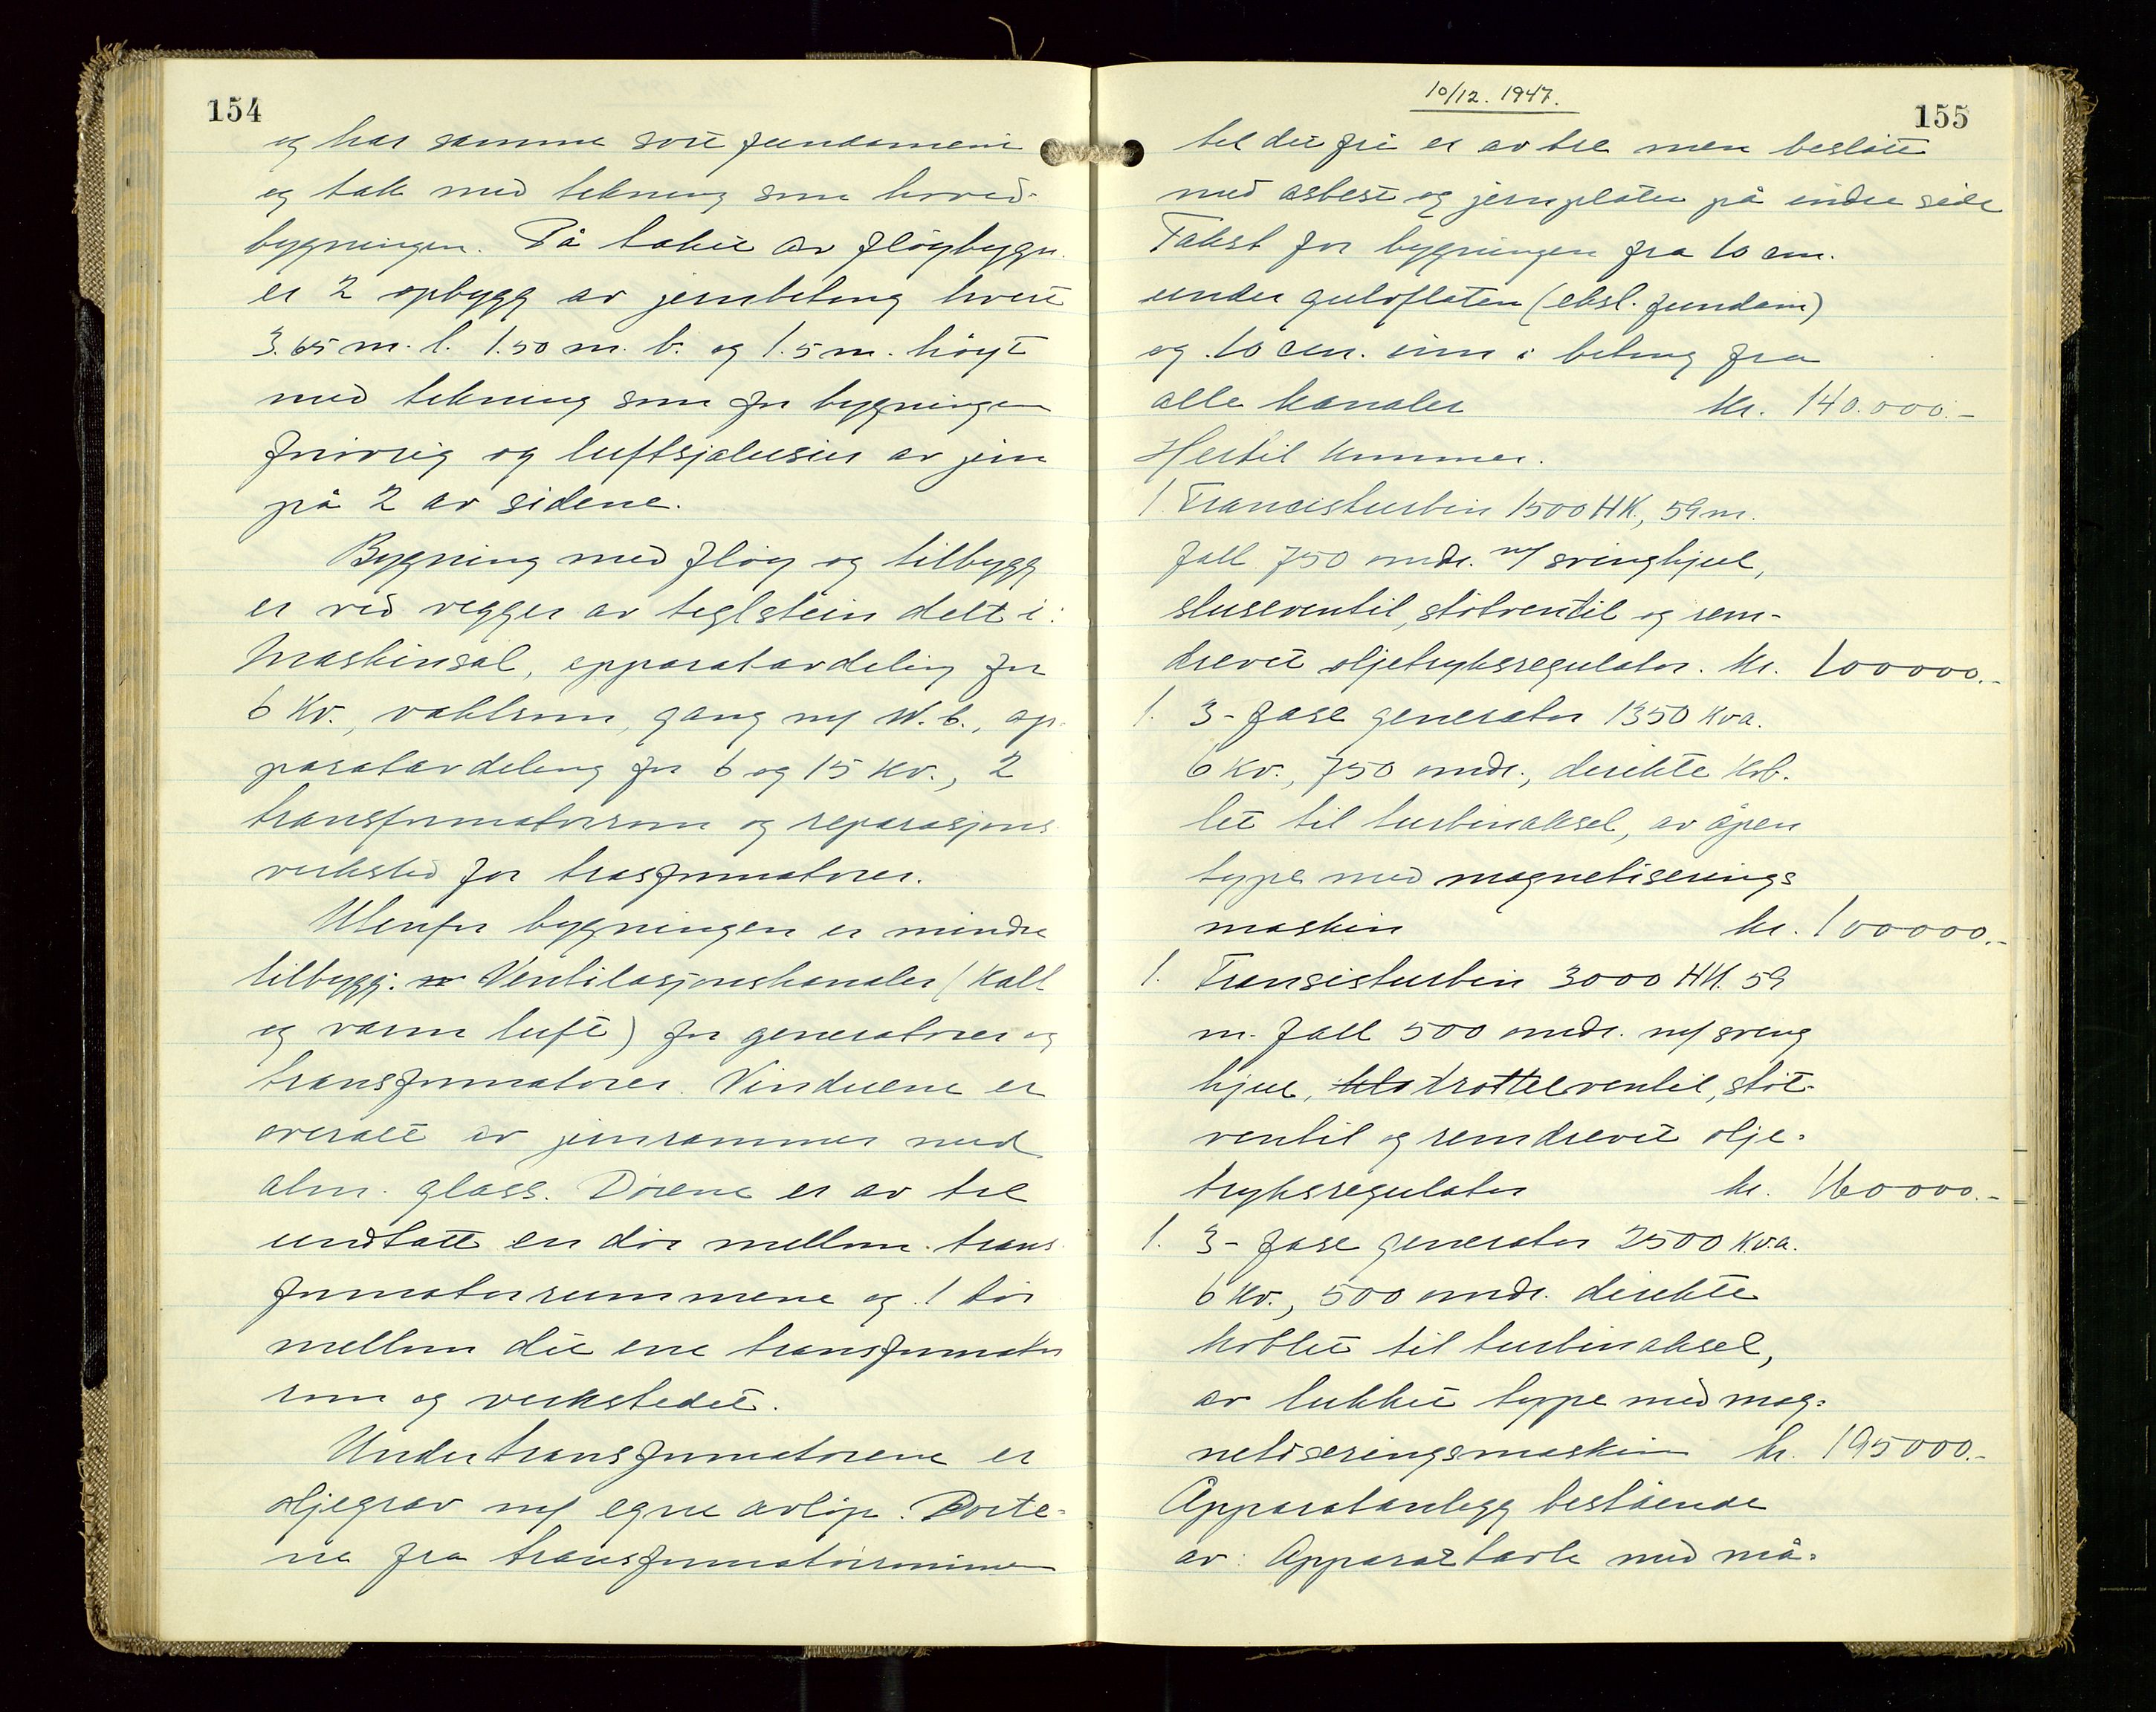 154
og har samme sort fundament
og tak med tekning som hoved-
bygningen. På taket av fløybygn.
er 2 opbygg av jernbetong hvert
3.65 m. l. 1.50 m. b. og 1.5 m. høyt
med tekning som for bygningen
forøvrig og luftsjalusier av jern
på 2 av sidene.
Bygning med fløy og tilbygg
er ved vegger av teglstein delt i:
Maskinsal, apparatavdeling for
6 Kv., vaktrum, gang m/ W.c., ap-
paratavdeling for 6 og 15 Kv., 2
transformatorrom og reparasjons
verksted for trasformatorer.
Utenfor bygningen er mindre
tilbygg: Ventilasjonskanaler (kald
og varm luft) for generatorer og
transformatorer. Vinduene er
overalt av jernrammer med
alm. glass. Dørene er av tre
undtatt en dør mellom trans
formatorrummene og 1 dør
mellom det ene transformator
rom og verkstedet.
Under transformatorene er
oljegrav m/ egne avløp. Porte-
ne fra transformatorrommene
10/12. 1947.
155
til det fri er av tre men beslått
med asbest og jernplater på indre side
Takst for bygningen fra 10 cm.
under gulvflaten (eksl. fundam)
og 10 cm. inn i betong fra
alle kanaler kr. 140.000.-
Hertil kommer.
1. Francisturbin 1500 HK., 59 m.
fall 750 omdr. m/ svinghjul,
sluseventil, støtventil og rem-
drevet oljetryksregulator. kr. 100000.-
1. 3- fase generator 1350 Kva.
6 Kv., 750 omdr., direkte kob-
let til turbinaksel, av åpen
type med magnetiserings
maskin kr. 100000.-
1. Fransisturbin 3000 HK. 59
m. fall 500 omdr. m/ sving
hjul, trottelventil, støt-
ventil og remdrevet olje-
tryksregulator kr. 160000.-
1. 3- fase generator 2500 K.v.a.
6 Kv., 500 omdr. direkte
koblet til turbinaksel,
av lukket type med mag-
netiseringsmaskin kr. 195000.-
Apparatanlegg bestående
av: Apparattavle med må-